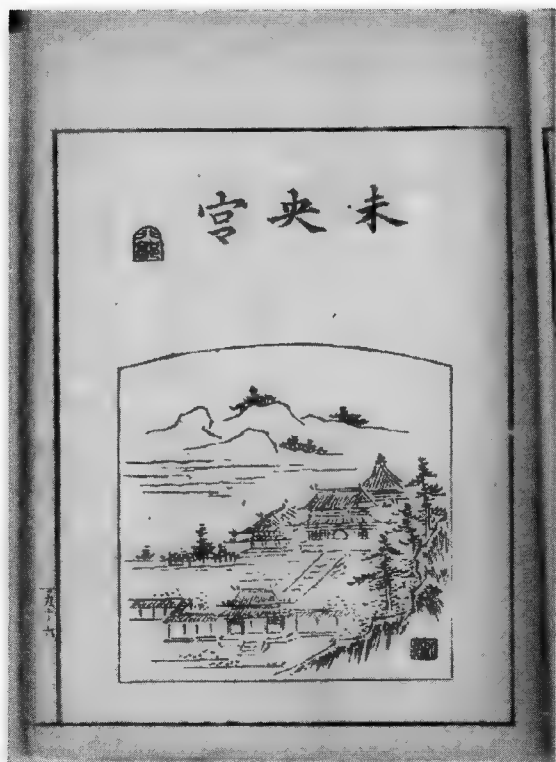 未央宮